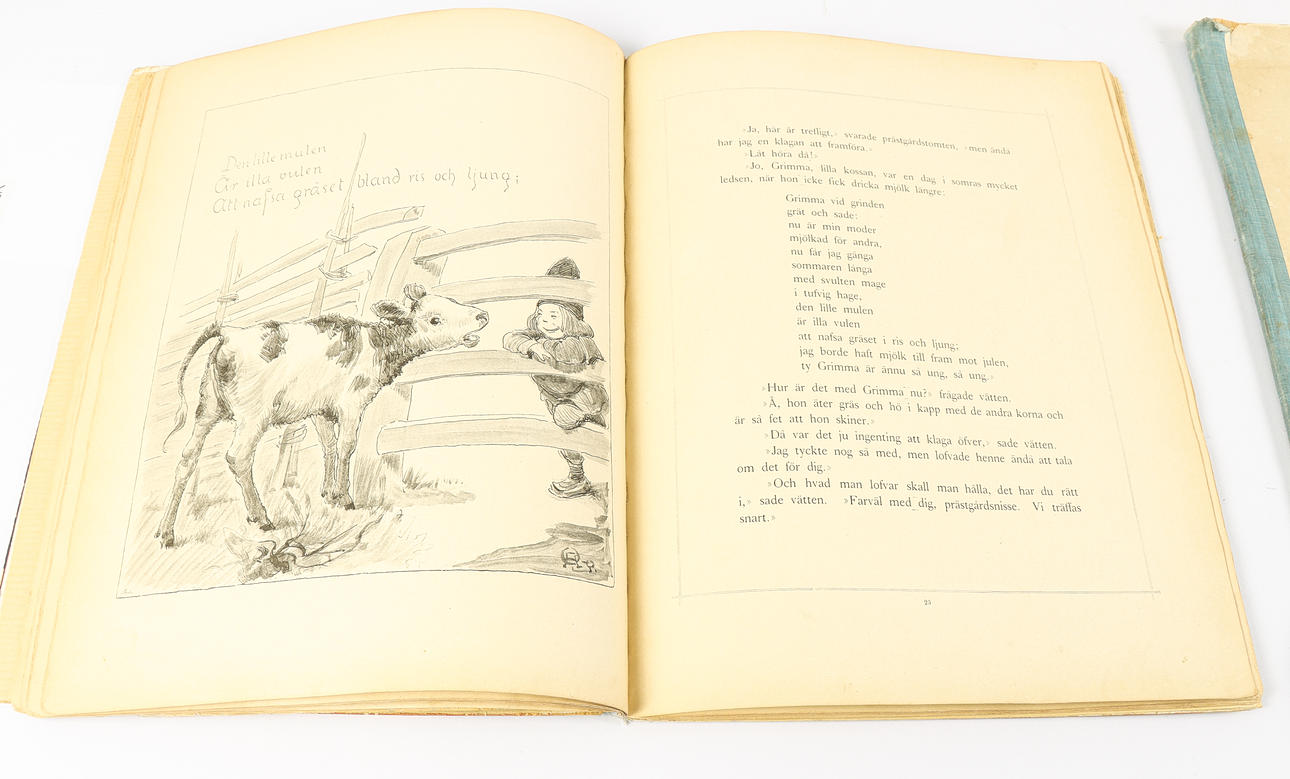 Den lille mulen
Är illa vulen
Att nafsa gräset bland ris och ljung;
»Ja, här är trefligt,» svarade prästgårdstomten, »men ändå
har jag en klagan att framföra.»
»Låt höra då!»
»Jo, Grimma, lilla kossan, var en dag i somras mycket
ledsen, när hon icke fick dricka mjölk längre:
Grimma vid grinden
grät och sade:
nu är min moder
mjölkad för andra,
nu får jag gånga
sommaren långa
med svulten mage
i tufvig hage,
den lille mulen
är illa vulen
att nafsa gräset i ris och ljung;
jag borde haft mjölk till fram mot julen,
ty Grimma är ännu så ung, så ung.»
»Hur är det med Grimma nu?» frågade vätten.
»Å, hon äter gräs och hö i kapp med de andra korna och
är så fet att hon skiner.»
»Då var det ju ingenting att klaga öfver,» sade vätten.
»Jag tyckte nog så med, men lofvade henne ändå att tala
om det för dig.»
»Och hvad man lofvar skall man hålla, det har du rätt
i,» sade vätten. »Farväl med dig, prästgårdsnisse. Vi träffas
snart.»
25